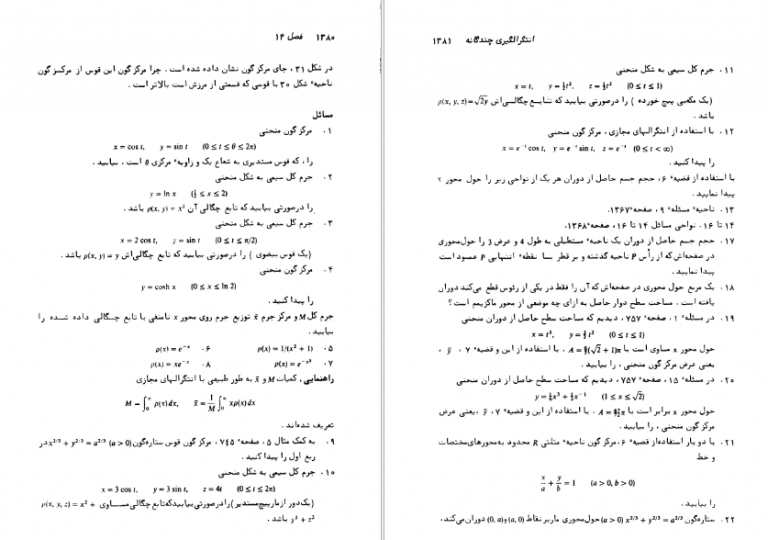 ۱۳۸۰ فصل ۱۴
در شکل ۳۱، جای مرکز گون نشان داده شده است. چرا مرکز گون این قوس از مرکز گون
ناحیهٔ شکل ۳۰ با قوسی که قسمتی از مرزش است بالاتر است.
مسائل
۱. مرکز گون منحنی
x = cos t, y = sin t (0 ≤ t ≤ θ ≤ 2π)
را، که قوس مستدیری به شعاع یک و زاویهٔ مرکزی θ است، بیابید.
۲. جرم کل سیمی به شکل منحنی
y = ln x (½ ≤ x ≤ 2)
را درصورتی بیابید که تابع چگالی آن ρ(x, y) = x² باشد.
۳. جرم کل سیمی به شکل منحنی
x = 2 cos t, y = sin t (0 ≤ t ≤ π/2)
(یک قوس بیضوی) را درصورتی بیابید که تابع چگالی‌اش ρ(x, y) = y باشد.
۴. مرکز گون منحنی
y = cosh x (0 ≤ x ≤ ln 2)
را پیدا کنید.
جرم کل M و مرکز جرم x̄ توزیع جرم روی محور x نامنفی با تابع چگالی داده شده را
بیابید.
۰۵ ρ(x) = e⁻ˣ ۰۶ ρ(x) = 1/(x² + 1)
۰۷ ρ(x) = xe⁻ˣ ۰۸ ρ(x) = e^{-x²}
راهنمایی. کمیات M و x̄ به طور طبیعی با انتگرالهای مجازی
M = ∫₀^∞ ρ(x) dx, x̄ = 1/M ∫₀^∞ xρ(x) dx
تعریف شده‌اند.
۹. به کمک مثال ۵، صفحهٔ ۷۴۵، مرکز گون قوس ستاره‌گون x^{2/3} + y^{2/3} = a^{2/3} (a > 0) در
ربع اول را پیدا کنید.
۱۰. جرم کل سیمی به شکل منحنی
x = 3 cos t, y = 3 sin t, z = 4t (0 ≤ t ≤ 2π)
(یک دور از مارپیچ مستدیر) را درصورتی بیابید که تابع چگالی مساوی ρ(x, y, z) = x² +
y² + z² باشد.
انتگرالگیری چندگانه ۱۳۸۱
۱۱. جرم کل سیمی به شکل منحنی
x = t, y = ½t², z = ⅓t³ (0 ≤ t ≤ 1)
(یک مکعبی پیچ خورده) را درصورتی بیابید که تابع چگالی‌اش ρ(x, y, z) = √2y
باشد.
۱۲. با استفاده از انتگرالهای مجازی، مرکز گون منحنی
x = e⁻ᵗ cos t, y = e⁻ᵗ sin t, z = e⁻ᵗ (0 ≤ t < ∞)
را پیدا کنید.
با استفاده از قضیهٔ ۶، حجم جسم حاصل از دوران هر یک از نواحی زیر را حول محور
پیدا نمایید.
۱۳. ناحیهٔ مسئلهٔ ۹، صفحهٔ ۱۳۶۷.
۱۴ تا ۱۶. نواحی مسائل ۱۴ تا ۱۶، صفحهٔ ۱۳۶۸.
۱۷. حجم جسم حاصل از دوران یک ناحیهٔ مستطیلی به طول 4 و عرض 3 را حول محوری
در صفحه‌اش که از رأس P ناحیه گذشته و بر قطر با نقطهٔ انتهایی P عمود است
پیدا نمایید.
۱۸. یک مربع حول محوری در صفحه‌اش که آن را فقط در یکی از رئوس قطع می‌کند دوران
یافته است. مساحت سطح دوار حاصل به ازای چه موضعی از محور ماکزیمم است؟
۱۹. در مسئلهٔ ۱، صفحهٔ ۷۵۷، دیدیم که مساحت سطح حاصل از دوران منحنی
(0 ≤ t ≤ 1)
حول محور x مساوی است با. با استفاده از این و قضیهٔ ۷، ȳ،
یعنی عرض مرکز گون منحنی، را بیابید.
۲۰. در مسئلهٔ ۱۵، صفحهٔ ۷۵۷، دیدیم که مساحت سطح حاصل از دوران منحنی
(1 ≤ x ≤ √2)
حول محور x برابر است با. با استفاده از این و قضیهٔ ۷، ȳ، یعنی عرض
مرکز گون منحنی، را بیابید.
۲۱. با دو بار استفاده از قضیهٔ ۶، مرکز گون ناحیهٔ مثلثی R محدود به محورهای مختصات
و خط
x/a + y/b = 1 (a > 0, b > 0)
را بیابید.
۲۲. ستاره‌گون x^{2/3} + y^{2/3} = a^{2/3} (a > 0) حول محوری مار بر نقاط (a, 0) و (0, a) دوران می‌کند.